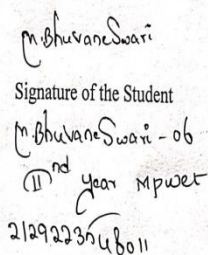 M. Bhuvaneswari
Signature of the Student
M. Bhuvaneswari - 06
IInd year MPWET